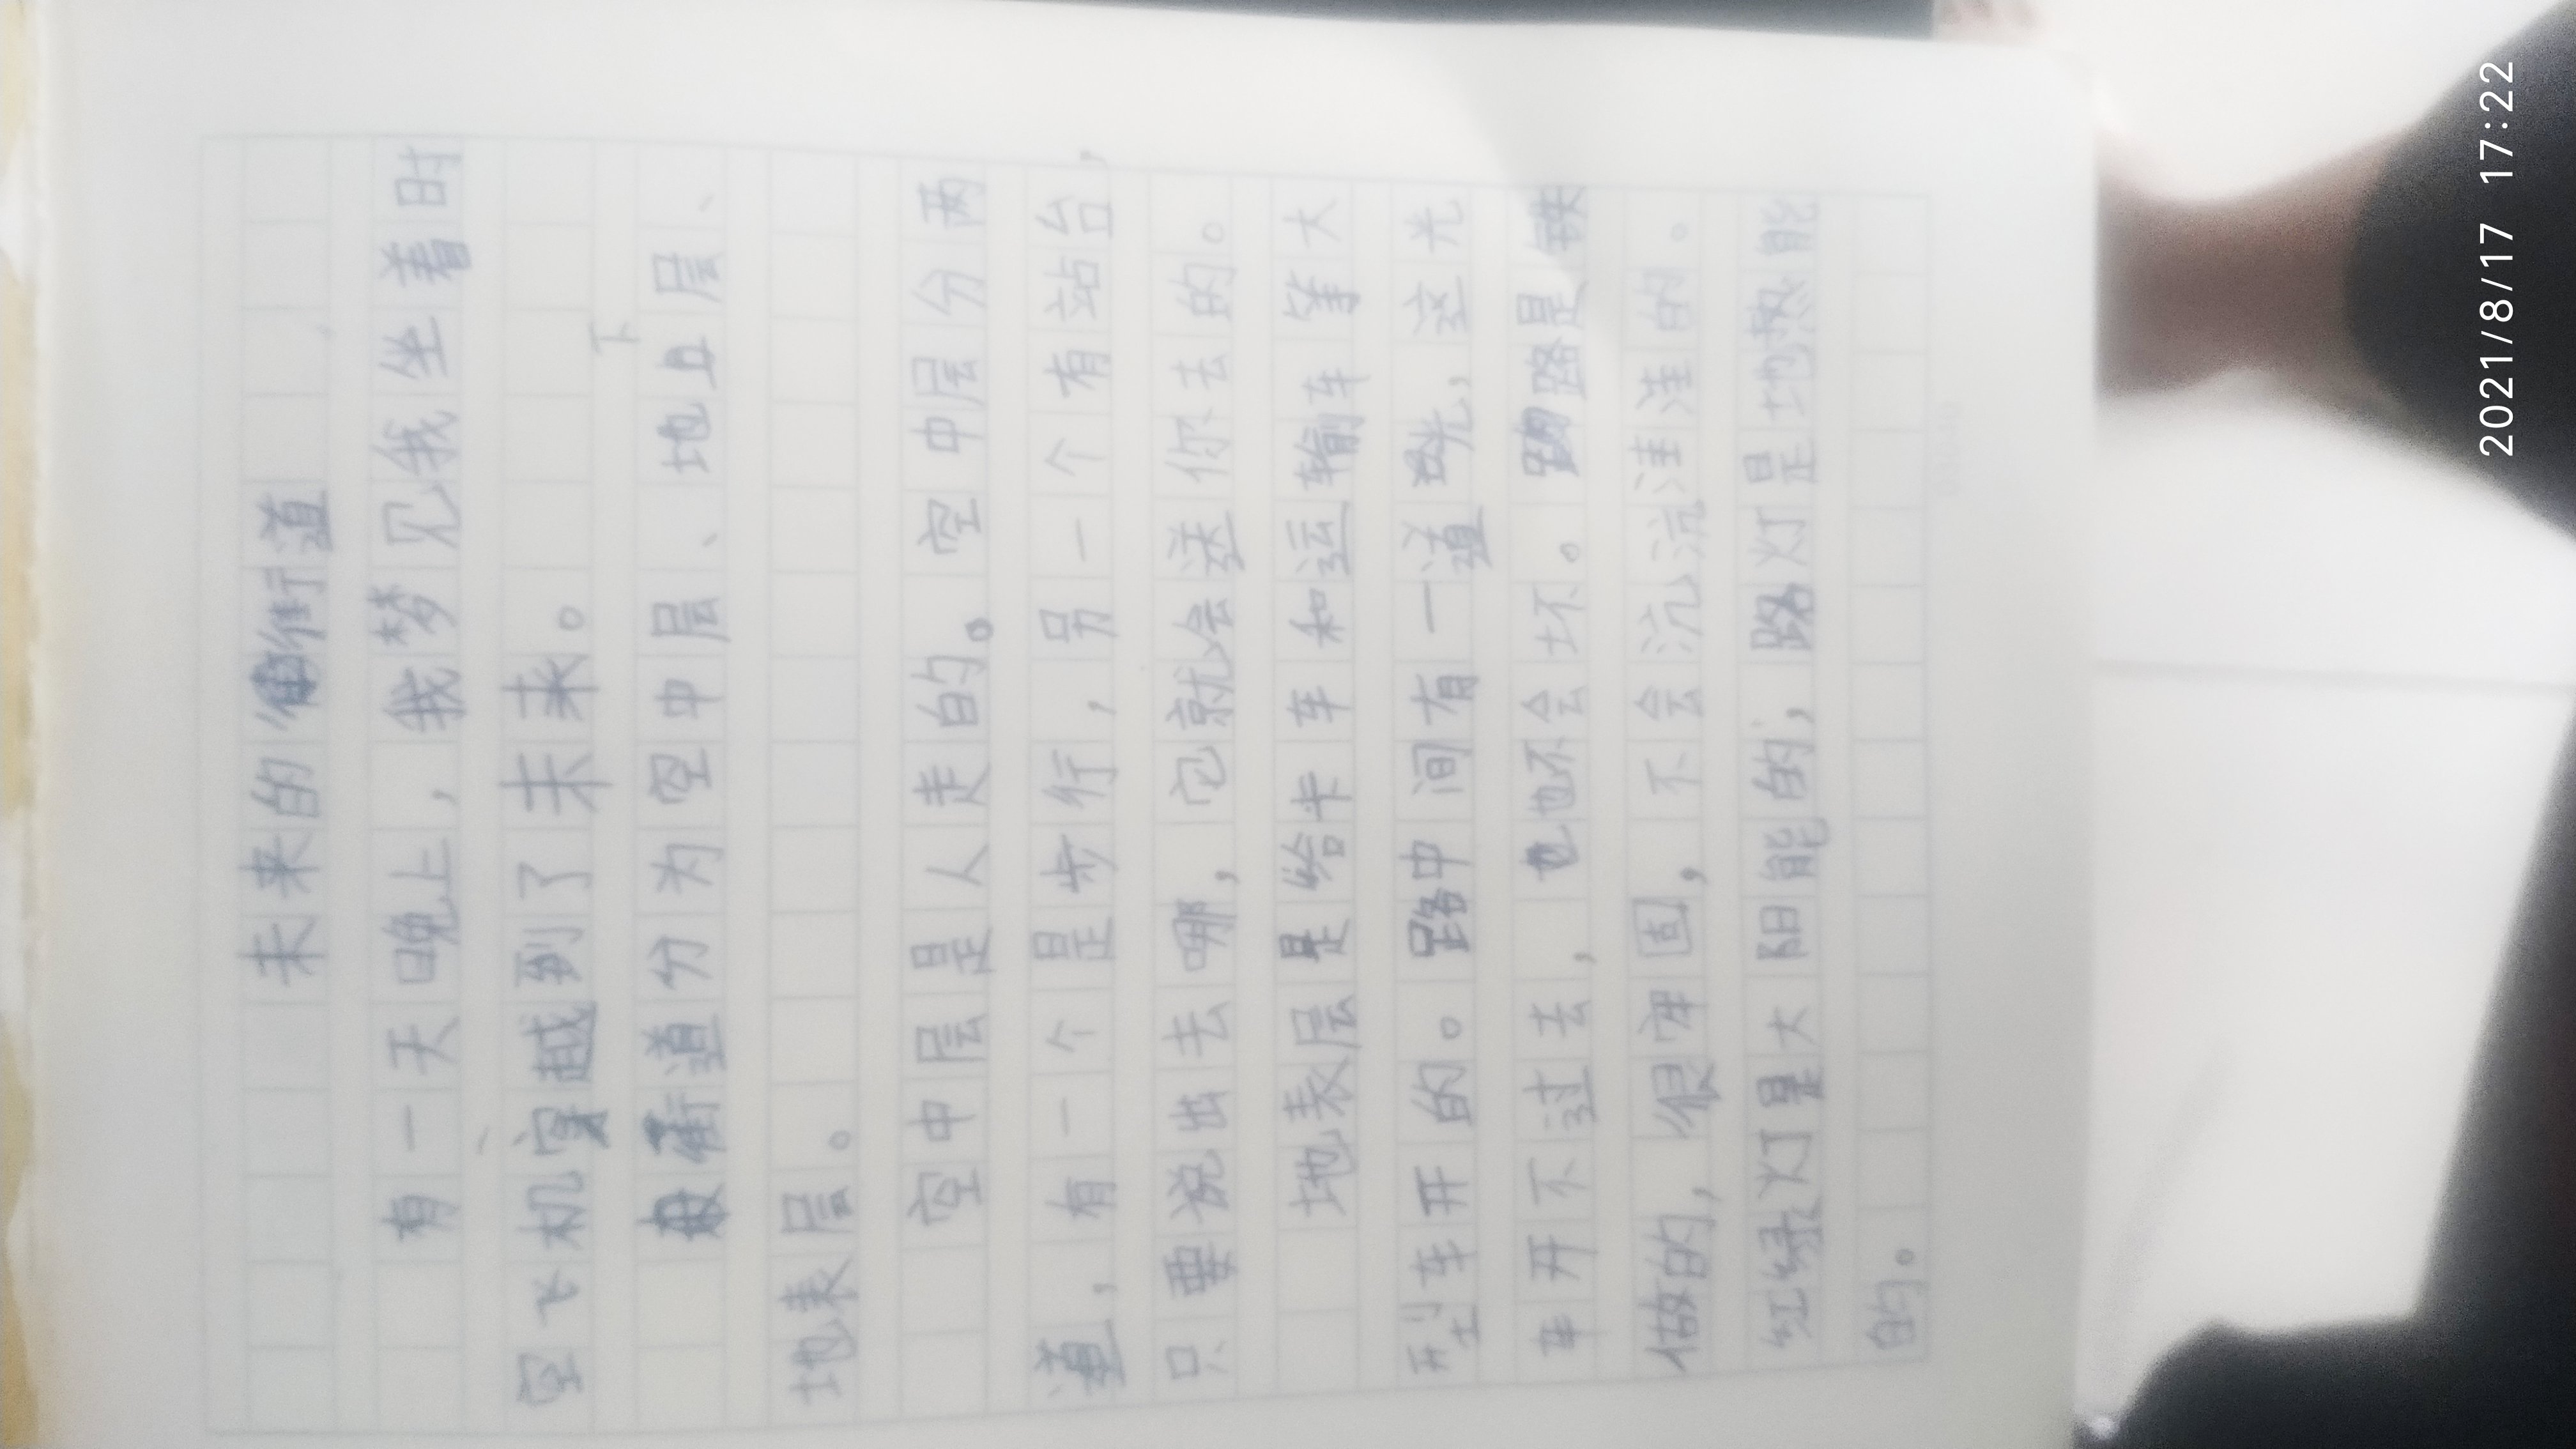 未来的街道
有一天晚上，我梦见我坐着时
空飞机穿越到了未来。
街道分为空中层、地下层、
地表层。
空中层是人走的。空中层分两
道，有一个是步行，另一个有站台，
只要说出去哪，它就会送你去的。
地表层是给卡车和运输车等大
型车开的。路中间有一道光，这光
车开不过去，也不会坏。路是铁
做的，很牢固，不会坑坑洼洼的。
红绿灯是大阳能的，路灯是地热能
的。
2021/8/17 17:22